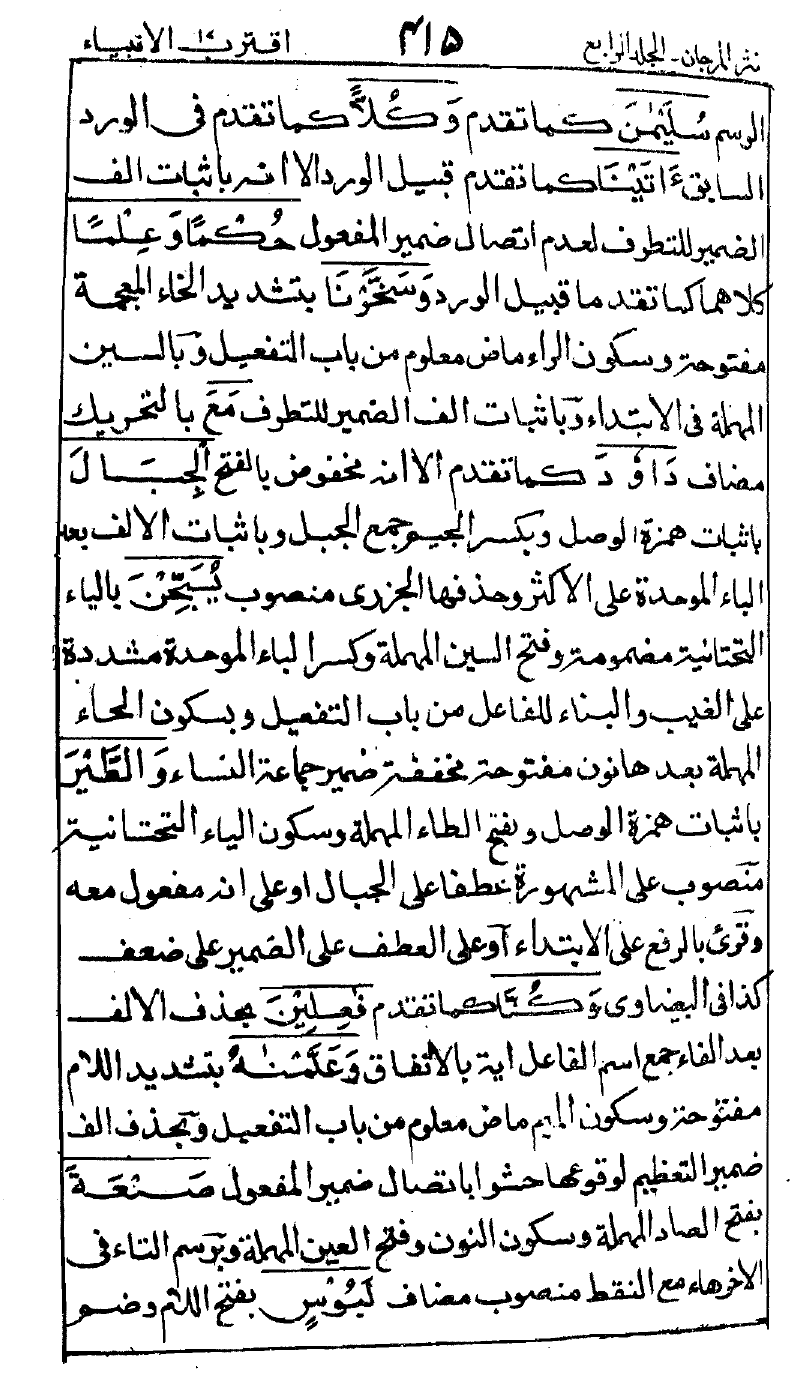 نثر المرجان - الجلد الرابع ٤١٥ اقترب ١٧ الانبياء
الرسم سُلَيْمٰنَ كما تقدم وَكُلًّا كما تقدم فى الورد
السابق ءَاتَيْنَا كما تقدم قبيل الورد الا انه باثبات الف
الضمير للتطوف لعدم اتصال ضمير المفعول حُكْمًا وَعِلْمًا
كلاهما كما تقدما قبيل الورد وَسَخَّرْنَا بتشديد الخاء المعجمة
مفتوحة وسكون الراء ماض معلوم من باب التفعيل وبالسين
المهملة فى الابتداء وباثبات الف الضمير للتطوف مَعَ بالتحريك
مضاف دَاوٗدَ كما تقدم الا انه مخفوض بالفتح الْجِبَالَ
باثبات همزة الوصل وبكسر الجيم جمع الجبل وباثبات الالف بعد
الباء الموحدة على الاكثر وحذفها الجزرى منصوب يُسَبِّحْنَ بالياء
التحتانية مضمومة وفتح السين المهملة وكسر الباء الموحدة مشددة
على الغيب والبناء للفاعل من باب التفعيل وبسكون الحاء
المهملة بعدها نون مفتوحة مخففة ضمير جماعة النساء وَالطَّيْرَ
باثبات همزة الوصل وبفتح الطاء المهملة وسكون الياء التحتانية
منصوب على المشهورة عطفا على الجبال او على انه مفعول معه
وقرئ بالرفع على الابتداء او على العطف على الضمير على ضعف
كذا فى البيضاوى وَكُنَّا كما تقدم فٰعِلِيْنَ بحذف الالف
بعد الفاء جمع اسم الفاعل اية بالاتفاق وَعَلَّمْنٰهُ بتشديد اللام
مفتوحة وسكون الميم ماض معلوم من باب التفعيل وبحذف الف
ضمير التعظيم لوقوعها حشوا باتصال ضمير المفعول صَنْعَةَ
بفتح الصاد المهملة وسكون النون وفتح العين المهملة وبرسم التاء فى
الاخرهاء مع النقط منصوب مضاف لَبُوْسٍ بفتح اللام وضم